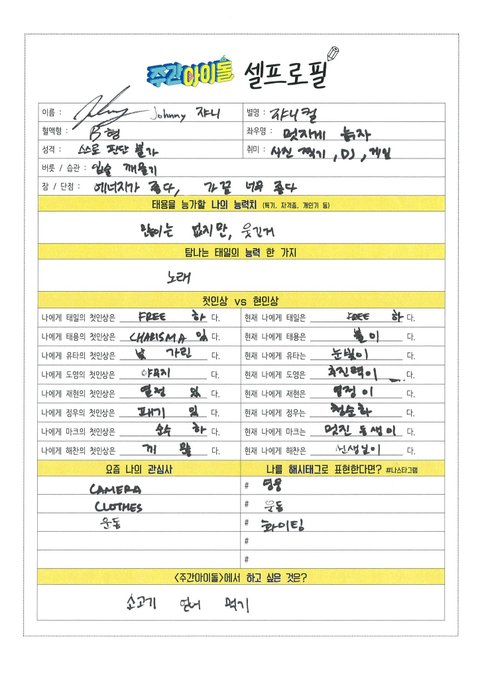 주간아이돌 셀프로필
이름 : Johnny 쟈니 별명 : 쟈니컬
혈액형 : B형 좌우명 : 멋지게 늙자
성격 : 스스로 판단 불가 취미 : 사진 찍기, DJ, 게임
버릇 / 습관 : 입술 깨물기
장 / 단점 : 에너지가 좋다, 가끔 너무 좋다
태용을 능가할 나의 능력치 (특기, 자격증, 개인기 등)
많이는 없지만, 웃긴거
탐나는 태일의 능력 한 가지
노래
첫인상 vs 현인상
나에게 태일의 첫인상은 FREE 하 다. 현재 나에게 태일은 FREE 하 다.
나에게 태용의 첫인상은 CHARISMA 있 다. 현재 나에게 태용은 불이 다.
나에게 유타의 첫인상은 낯 가린 다. 현재 나에게 유타는 눈빛이 다.
나에게 도영의 첫인상은 야무지 다. 현재 나에게 도영은 추진력이 다.
나에게 재현의 첫인상은 열정 있 다. 현재 나에게 재현은 열정이 다.
나에게 정우의 첫인상은 패기 있 다. 현재 나에게 정우는 다.
나에게 마크의 첫인상은 순수 하 다. 현재 나에게 마크는 멋진 동생이 다.
나에게 해찬의 첫인상은 끼 많 다. 현재 나에게 해찬은 선생님이 다.
요즘 나의 관심사 나를 해시태그로 표현한다면? #나스타그램
CAMERA # 영웅
CLOTHES # 운동
운동 # 화이팅
#
#
<주간아이돌>에서 하고 싶은 것은?
소고기 먹기